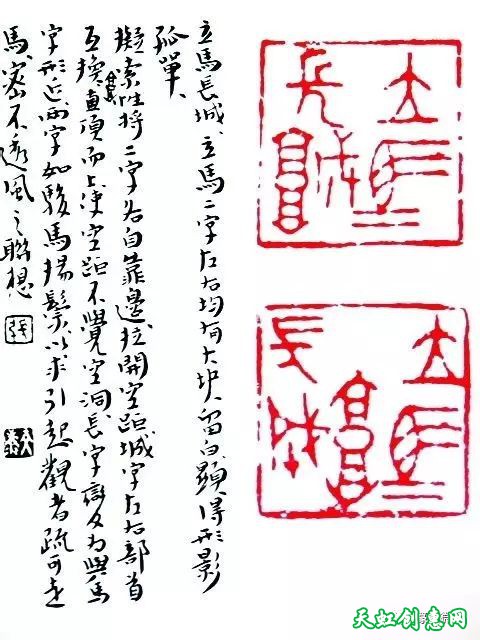 立馬長城、立馬二字左右均有大塊留白顯得形影
孤單、
擬索性將二字各自靠邊拉開空距城字左右部首
互換直頂而上使空距不覺空洞長字變为與馬
字形近兩字如駿馬揚鬃以求引起觀者疏可走
馬密不透風之聯想
張
立馬
長城
立馬
長城
天虹创意网